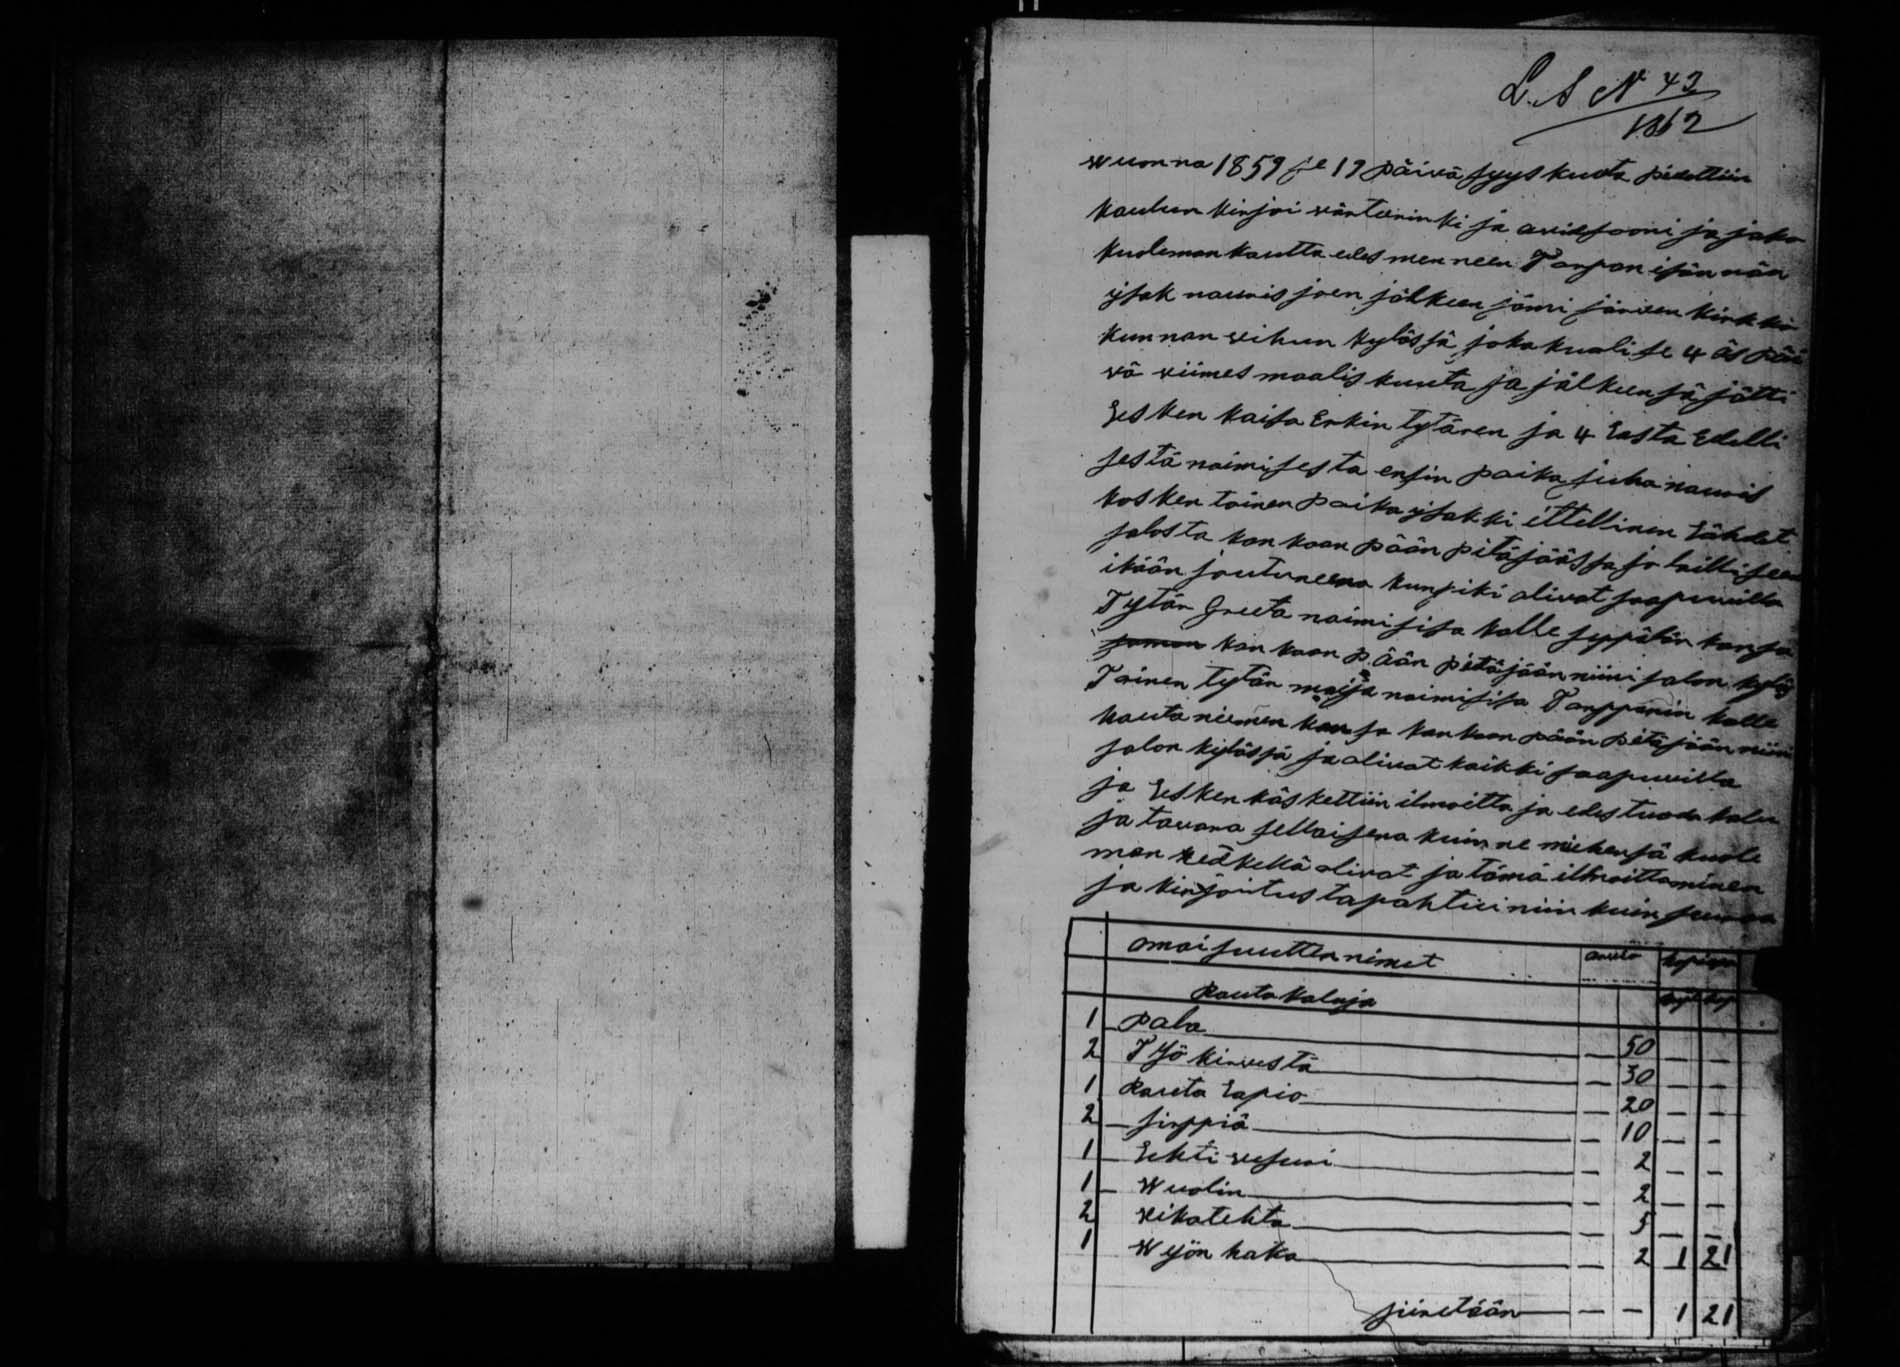 L. A N 42
1862
wuonna 1859 se 19 päivä syys kuuta pidettiin
kaulun kirjoi värteerinki ja avisiooni ja jako
kuoleman kautta edes men neen Tarpan isän nän
ysak nauris joen jälkeen jämi järven kirkko
kunnan vihun kyläs sä joka kuoli se 4 äs päi
vä viimes maalis kuuta ja jälkeensä jätti
Lesken kaisa Erkin tytären ja 4 Lasta Edelli
sestä naimisesta ensin poika juha nauris
kosken toinen poika ysakki ittellinen Lähdet
salosta kan kaan pään pitäjääs sä jo lailliseen
ikään joutuneena kumpiki olivat saapuvilla
Tytär Greeta naimisisa kalle seppälän kansa
saman kan kaan pään pitäjään niini salon kyläs
Toinen tytär maija naimisisa Tarppanin kalle
hauta niemen kansa kan kaan pään pitäjään niini
salon kyläs sä ja olivat kaikki saapuvilla
ja Lesken käskettiin ilmoitta ja edes tuoda kalu
ja tavara sellaisena kuin ne miehensä kuole
man hetkellä olivat ja tämä ilmoittaminen
ja kirjoitus tapahtui niin kuin seuraa
omaisuutten nimet arvio hopiasa
Rauta kaluja rupl kop
1 pata — 50 — —
2 Työ kirvestä — 30 — —
1 Rauta Lapio — 20 — —
2 sirppiä — 10 — —
1 Lehti vesuri — 2 — —
1 Wuolin — 2 — —
2 vikatehta — 5 — —
1 Wyön haka — 2 1 21
siiretään — — 1 21